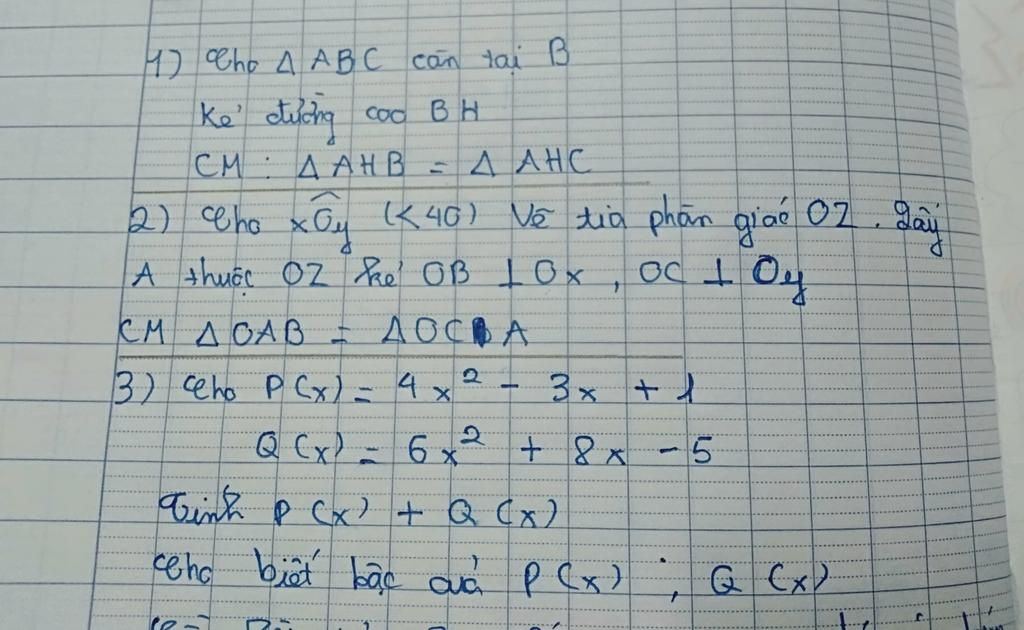 1) Cho Δ ABC cân tại B
Kẻ đường cao BH
CM : Δ AHB = Δ AHC
2) Cho xÔy (<40) Vẽ tia phân giác OZ. Lấy
A thuộc OZ kẻ OB ⊥ Ox, OC ⊥ Oy
CM Δ OAB = Δ OCA
3) Cho P(x) = 4x² - 3x + 1
Q(x) = 6x² + 8x - 5
Tính P(x) + Q(x)
Cho biết bậc của P(x) ; Q(x)